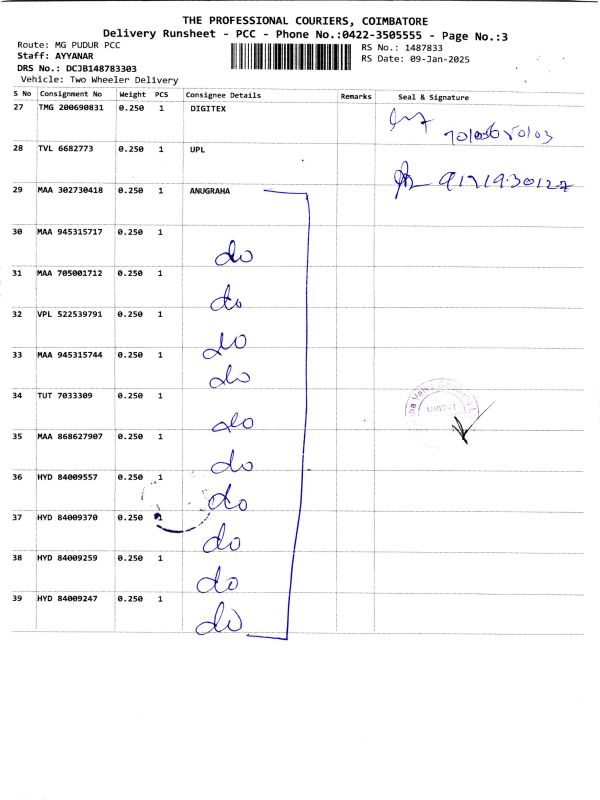 THE PROFESSIONAL COURIERS, COIMBATORE
Delivery Runsheet - PCC - Phone No.:0422-3505555 - Page No.:3
Route: MG PUDUR PCC
Staff: AYYANAR
DRS No.: DCJB148783303
Vehicle: Two Wheeler Delivery
RS No.: 1487833
RS Date: 09-Jan-2025
S No Consignment No Weight PCS Consignee Details Remarks Seal & Signature
27 TMG 200690831 0.250 1 DIGITEX
28 TVL 6682773 0.250 1 UPL
29 MAA 302730418 0.250 1 ANUGRAHA
30 MAA 945315717 0.250 1
do
31 MAA 705001712 0.250 1
do
32 VPL 522539791 0.250 1
do
33 MAA 945315744 0.250 1
do
34 TUT 7033309 0.250 1
do
UNIT-1
35 MAA 868627907 0.250 1
do
36 HYD 84009557 0.250 1
do
37 HYD 84009370 0.250 1
do
38 HYD 84009259 0.250 1
do
39 HYD 84009247 0.250 1
do